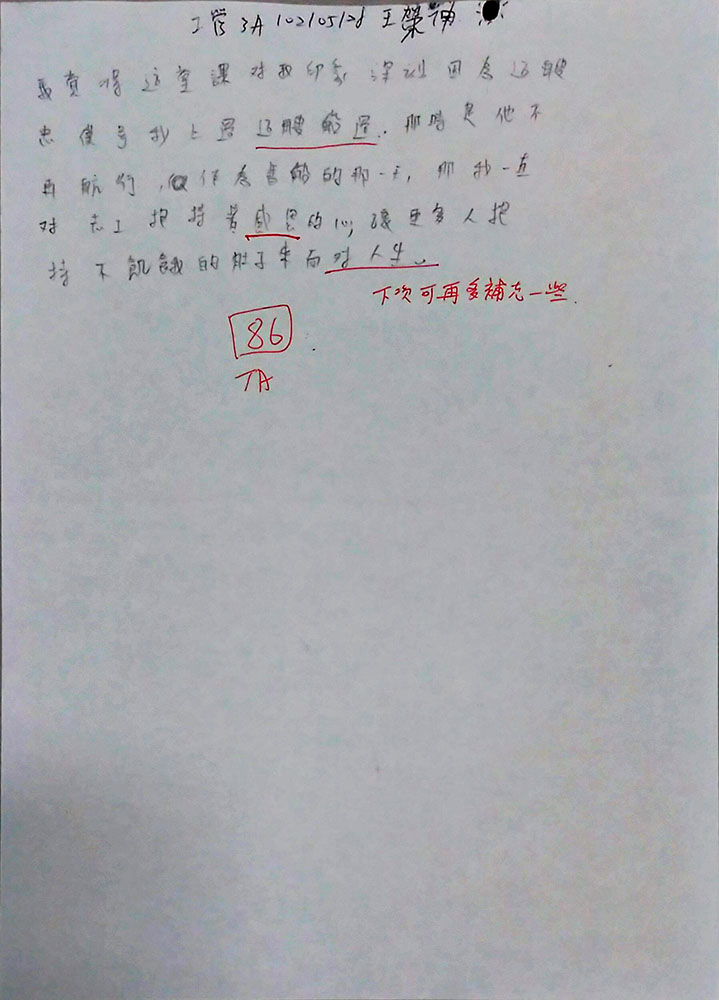 工管 3A 102105128 王榮
我覺得這堂課對我印象深刻因為這艘
忠僕号我上過這艘船過.那時是他不
再航行,做作為書船的那一天,那我一直
对志工把持著感恩的心,讓更多人把
持不飢餓的肚子來面对人生.
下次可再多補充一些.
86
TA